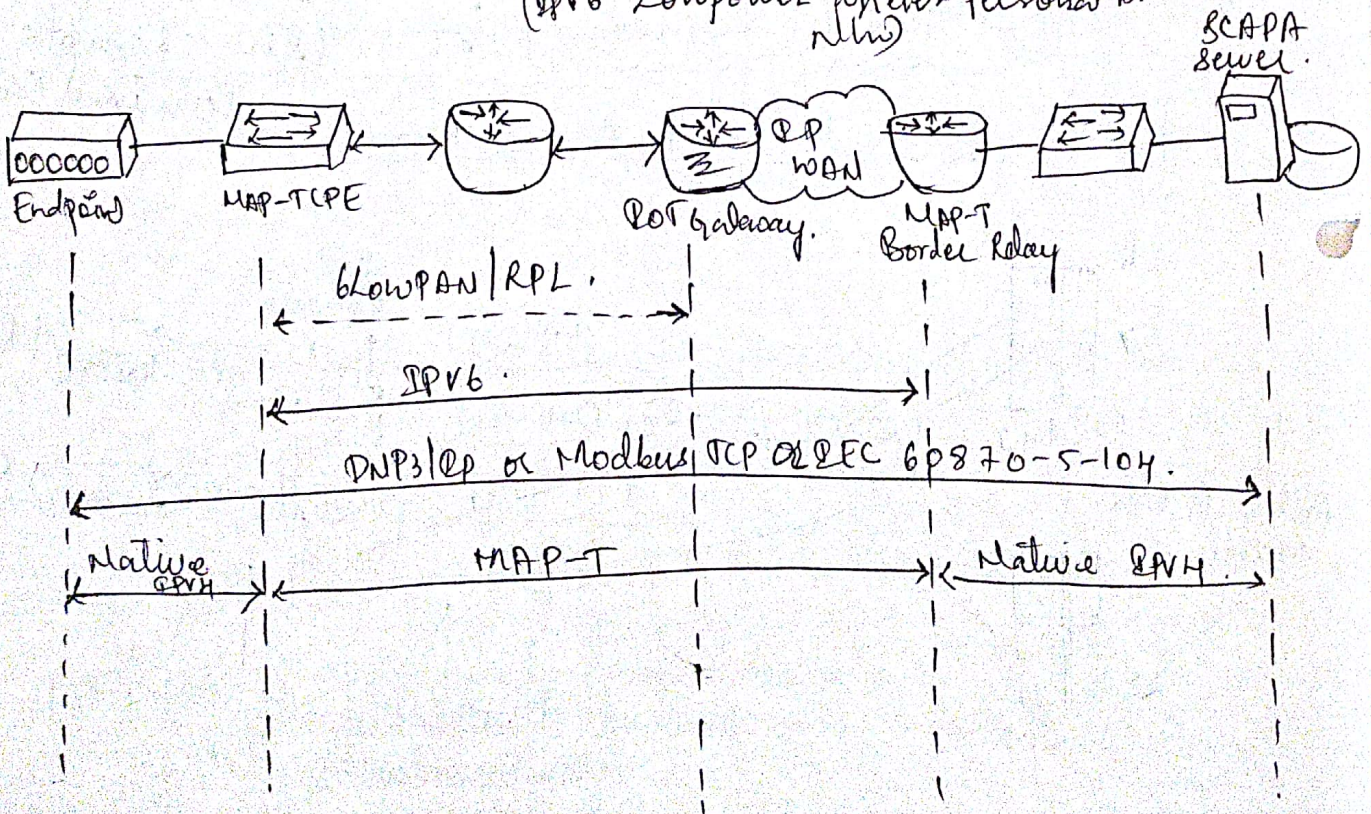 (IPV6 Low power
N/w)
SCADA
server.
IP
WAN
000000
Endpoint
MAP-T CPE
IOT Gateway.
MAP-T
Border Relay
6LowPAN/RPL.
IPV6.
DNP3/IP or Modbus TCP OR IEC 60870-5-104.
Native
IPV4
MAP-T
Native IPV4.